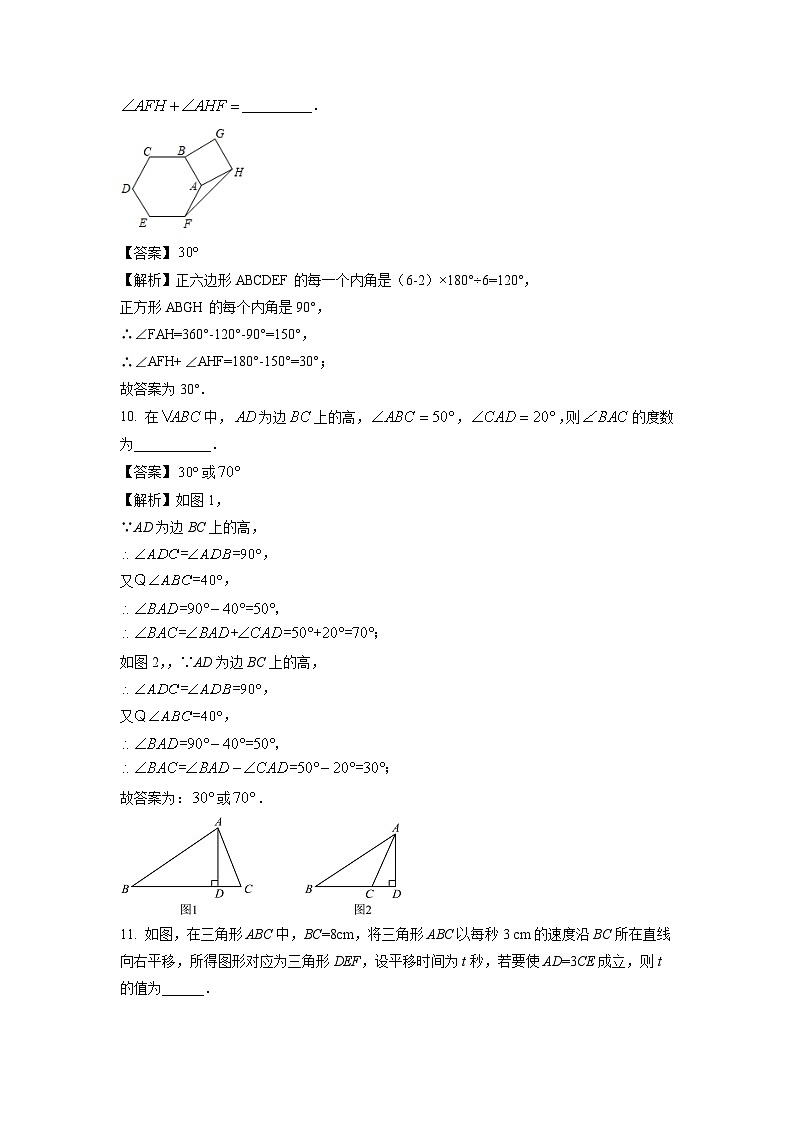 ∠AFH+∠AHF=__________．
G
C B
H
A
D
E F
【答案】30°
【解析】正六边形 ABCDEF 的每一个内角是（6-2）×180°÷6=120°，
正方形 ABGH 的每个内角是 90°，
∴∠FAH=360°-120°-90°=150°，
∴∠AFH+ ∠AHF=180°-150°=30°；
故答案为 30°．
10. 在 VABC 中， AD 为边 BC 上的高，∠ABC = 50°，∠CAD = 20°，则∠BAC 的度数
为___________．
【答案】30°或70°
【解析】如图 1，
∵AD 为边 BC 上的高，
∴ ∠ADC=∠ADB=90°，
又Q∠ABC=40°，
∴ ∠BAD=90°－40°=50°，
∴ ∠BAC=∠BAD+∠CAD=50°+20°=70°；
如图 2，，∵AD 为边 BC 上的高，
∴ ∠ADC=∠ADB=90°，
又Q∠ABC=40°，
∴ ∠BAD=90°－40°=50°，
∴ ∠BAC=∠BAD－∠CAD=50°－20°=30°；
故答案为：30°或70°．
A A
B D C B C D
图1 图2
11. 如图，在三角形 ABC 中，BC=8cm，将三角形 ABC 以每秒 3 cm 的速度沿 BC 所在直线
向右平移，所得图形对应为三角形 DEF，设平移时间为 t 秒，若要使 AD=3CE 成立，则 t
的值为______．